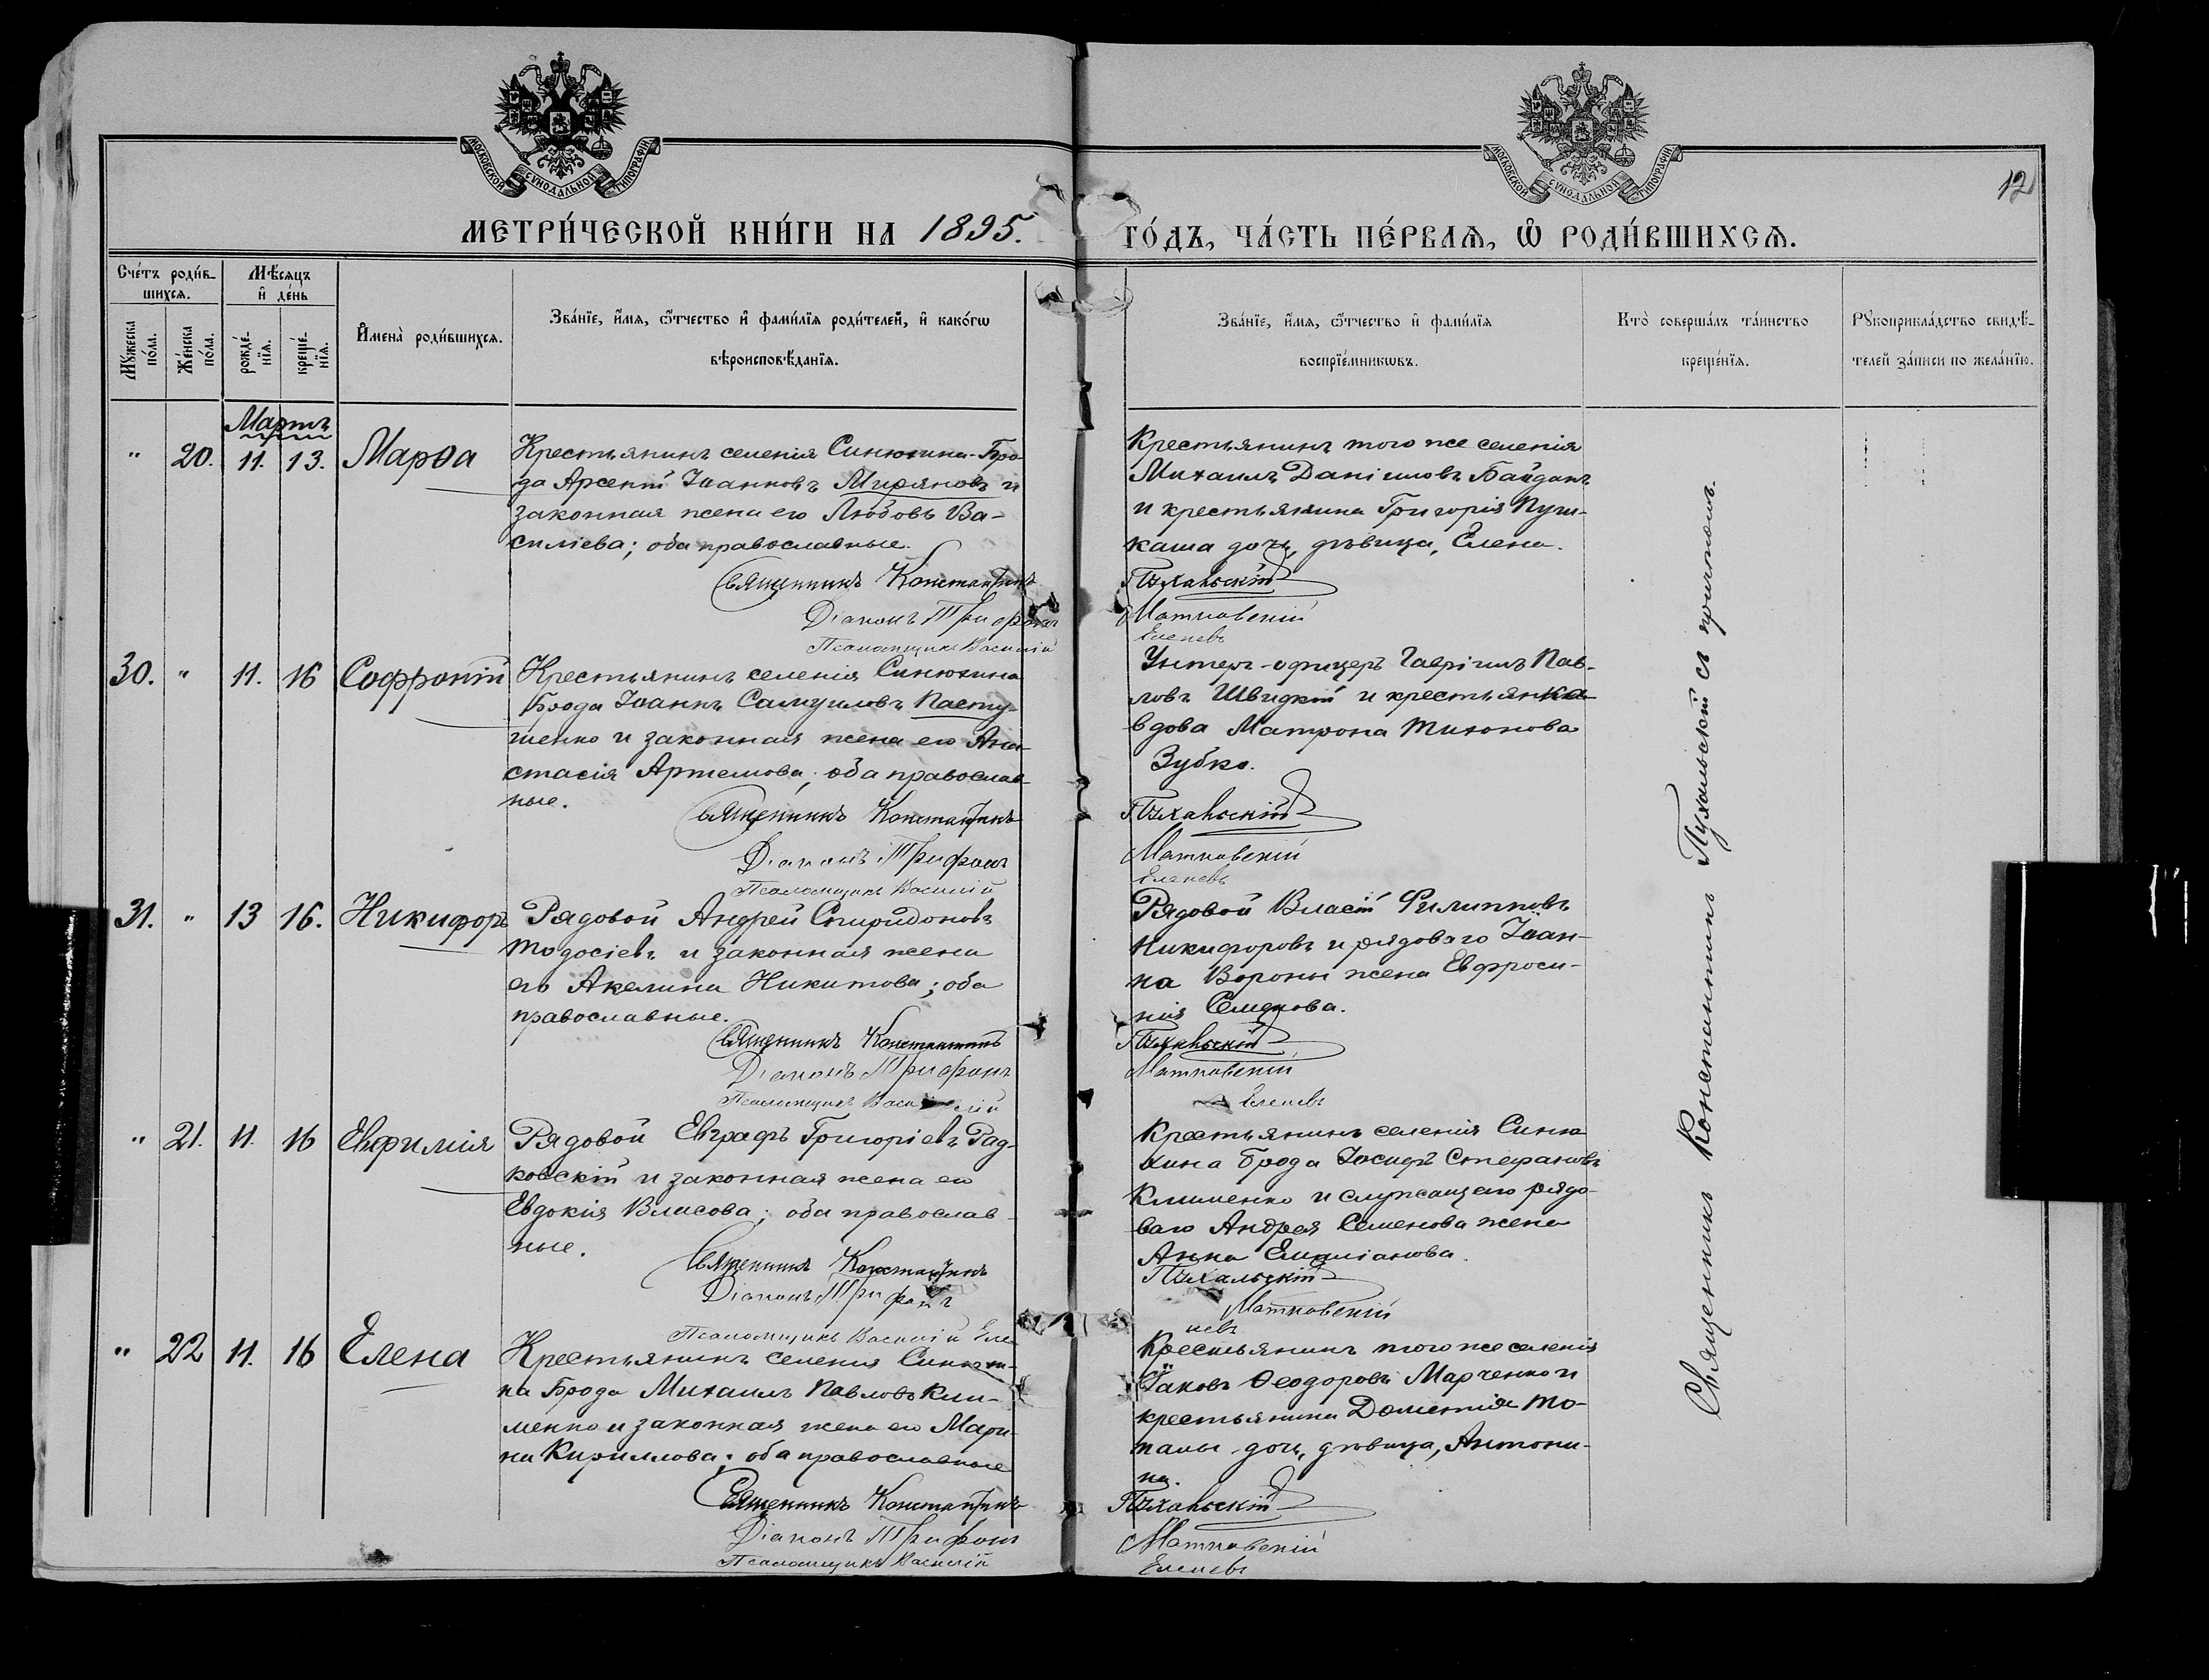 МОСКОВСКОЙ СѴНОДАЛЬНОЙ ТИПОГРАФІИ
МОСКОВСКОЙ СѴНОДАЛЬНОЙ ТИПОГРАФІИ
12
МЕТРИ́ЧЕСКОЙ КНИ́ГИ НА 1895. ГО́ДЪ, ЧА́СТЬ ПЕ́РВАѦ, Ѽ РОДИ́ВШИХСѦ.
Сче́тъ роди́в-
шихсѧ.
Мѣ́сѧцъ
и҆ де́нь
Мꙋжеска по́ла.
Же́нска по́ла.
рожде́-нїѧ.
креще́-нїѧ.
И҆мена̀ роди́вшихсѧ.
Зва́нїе, и҆́мѧ, ѻ҆́тчество и҆ фами́лїѧ роди́телей, и҆ како́гѡ
вѣроисповѣ́данїѧ.
Зва́нїе, и҆́мѧ, ѻ҆́тчество и҆ фами́лїѧ
воспрїе́мникѡвъ.
Кто̀ соверша́лъ та́инство
креще́нїѧ.
Рꙋкоприкла́дство свидѣ́-
телей за́писи по жела́нїю.
Мартъ
" 20. 11. 13. Марѳа
Крестьянинъ селенія Синюхина-Бро-
да Арсеній Іоанновъ Миряновъ и
законная жена его Любовь Ва-
силіева; оба православные.
Священникъ Константинъ
Діаконъ Трифонъ
Псаломщикъ Василій
Крестьянинъ того же селенія
Михаилъ Даніиловъ Байданъ
и крестьянина Григорія Пуш-
каша дочь, дѣвица, Елена.
Пухальскій
Матковскій
Еленевъ
30. " 11. 16 Софроній
Крестьянинъ селенія Синюхина
Брода Іоаннъ Самуиловъ Пасту-
шенко и законная жена его Ана-
стасія Артемова; оба православ-
ные.
Священникъ Константинъ
Діаконъ Трифонъ
Псаломщикъ Василій
Унтеръ-офицеръ Гавріилъ Пав-
ловъ Швидкій и крестьянка
вдова Матрона Тихонова
Зубко.
Пухальскій
Матковскій
Еленевъ
31. " 13 16. Никифоръ
Рядовой Андрей Спиридоновъ
Тодосіевъ и законная жена
его Акелина Никитова; оба
православные.
Священникъ Константинъ
Діаконъ Трифонъ
Псаломщикъ Василій
Рядовой Власій Филипповъ
Никифоровъ и рядового Іоан-
на Вороны жена Евфроси-
нія Семенова.
Пухальскій
Матковскій
Еленевъ
" 21. 11. 16 Евфимія
Рядовой Евграфъ Григоріевъ Рад-
ковскій и законная жена его
Евдокія Власова; оба православ-
ные.
Священникъ Константинъ
Діаконъ Трифонъ
Псаломщикъ Василій Еле-
Крестьянинъ селенія Синю-
хина Брода Іосифъ Стефановъ
Клименко и служащаго рядо-
ваго Андрея Семенова жена
Анна Емиліанова.
Пухальскій
Матковскій
невъ
" 22 11. 16 Елена
Крестьянинъ селенія Синюхи-
на Брода Михаилъ Павловъ Кли-
менко и законная жена его Мари-
на Кириллова; оба православные
Священникъ Константинъ
Діаконъ Трифонъ
Псаломщикъ Василій
Крестьянинъ того же селенія
Іаковъ Ѳеодоровъ Марченко и
крестьянина Дометія То-
палы дочь, дѣвица, Антони-
на.
Пухальскій
Матковскій
Еленевъ
Священникъ Константинъ Пухальскій съ причтомъ.